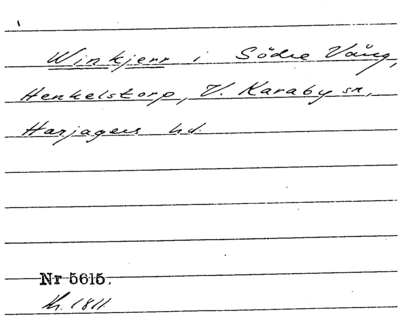 Winkjerr i Södre Vång,
Henkelstorp, V. Karaby sn,
Harjagers hd.
Nr 5615.
Kr. 1811